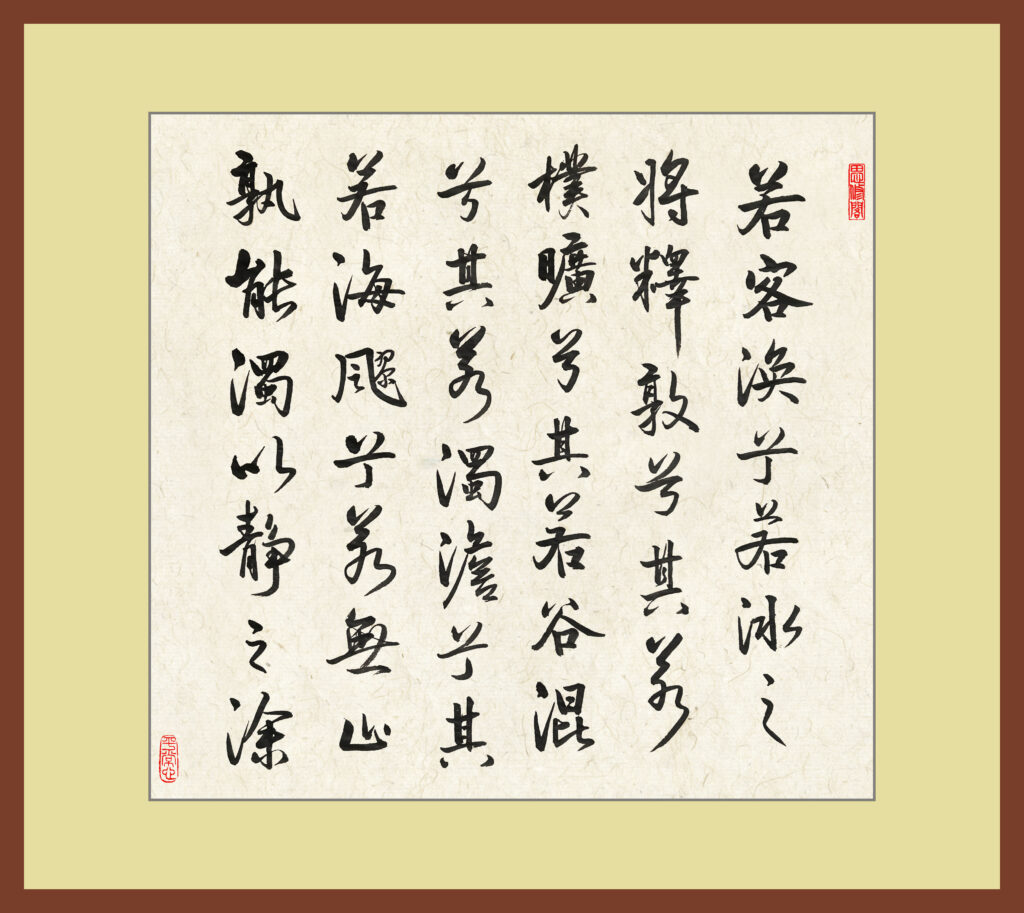 思修閣
若客渙兮若冰之
將釋敦兮其若
樸曠兮其若谷混
兮其若濁澹兮其
若海飂兮若無止
孰能濁以靜之徐
平常心